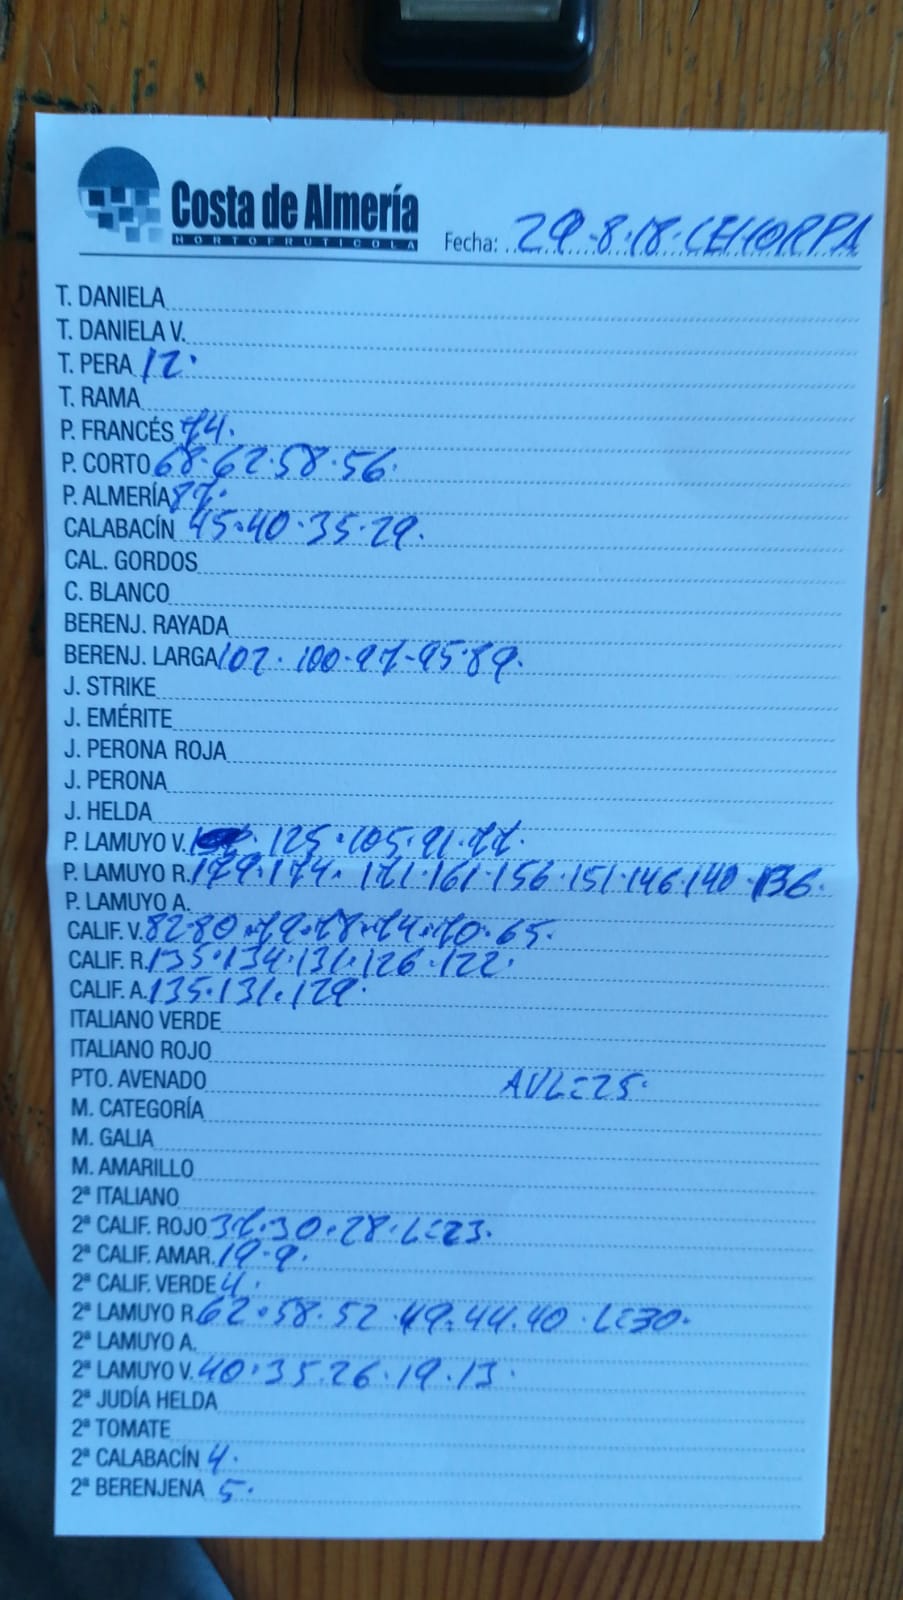 Costa de Almería
HORTOFRUTICOLA
Fecha: 29.8.18. CEHORPA
T. DANIELA
T. DANIELA V.
T. PERA 12.
T. RAMA
P. FRANCÉS 74.
P. CORTO 68.62.58.56.
P. ALMERÍA 87.
CALABACÍN 45.40.35.29.
CAL. GORDOS
C. BLANCO
BERENJ. RAYADA
BERENJ. LARGA 102.100.97-95.89.
J. STRIKE
J. EMÉRITE
J. PERONA ROJA
J. PERONA
J. HELDA
P. LAMUYO V. 125.105.91.77.
P. LAMUYO R. 179.174.171.161.156.151.146.140.136.
P. LAMUYO A.
CALIF. V. 82-80.79.78.74.70.65.
CALIF. R. 135.134.131.126.122.
CALIF. A. 135.131.129.
ITALIANO VERDE
ITALIANO ROJO
PTO. AVENADO AVL=25.
M. CATEGORÍA
M. GALIA
M. AMARILLO
2ª ITALIANO
2ª CALIF. ROJO 30.28.L=23.
2ª CALIF. AMAR. 19.9.
2ª CALIF. VERDE 4.
2ª LAMUYO R. 62.58.52.49.44.40.L=30.
2ª LAMUYO A.
2ª LAMUYO V. 40.35.26.19.13.
2ª JUDÍA HELDA
2ª TOMATE
2ª CALABACÍN 4.
2ª BERENJENA 5.